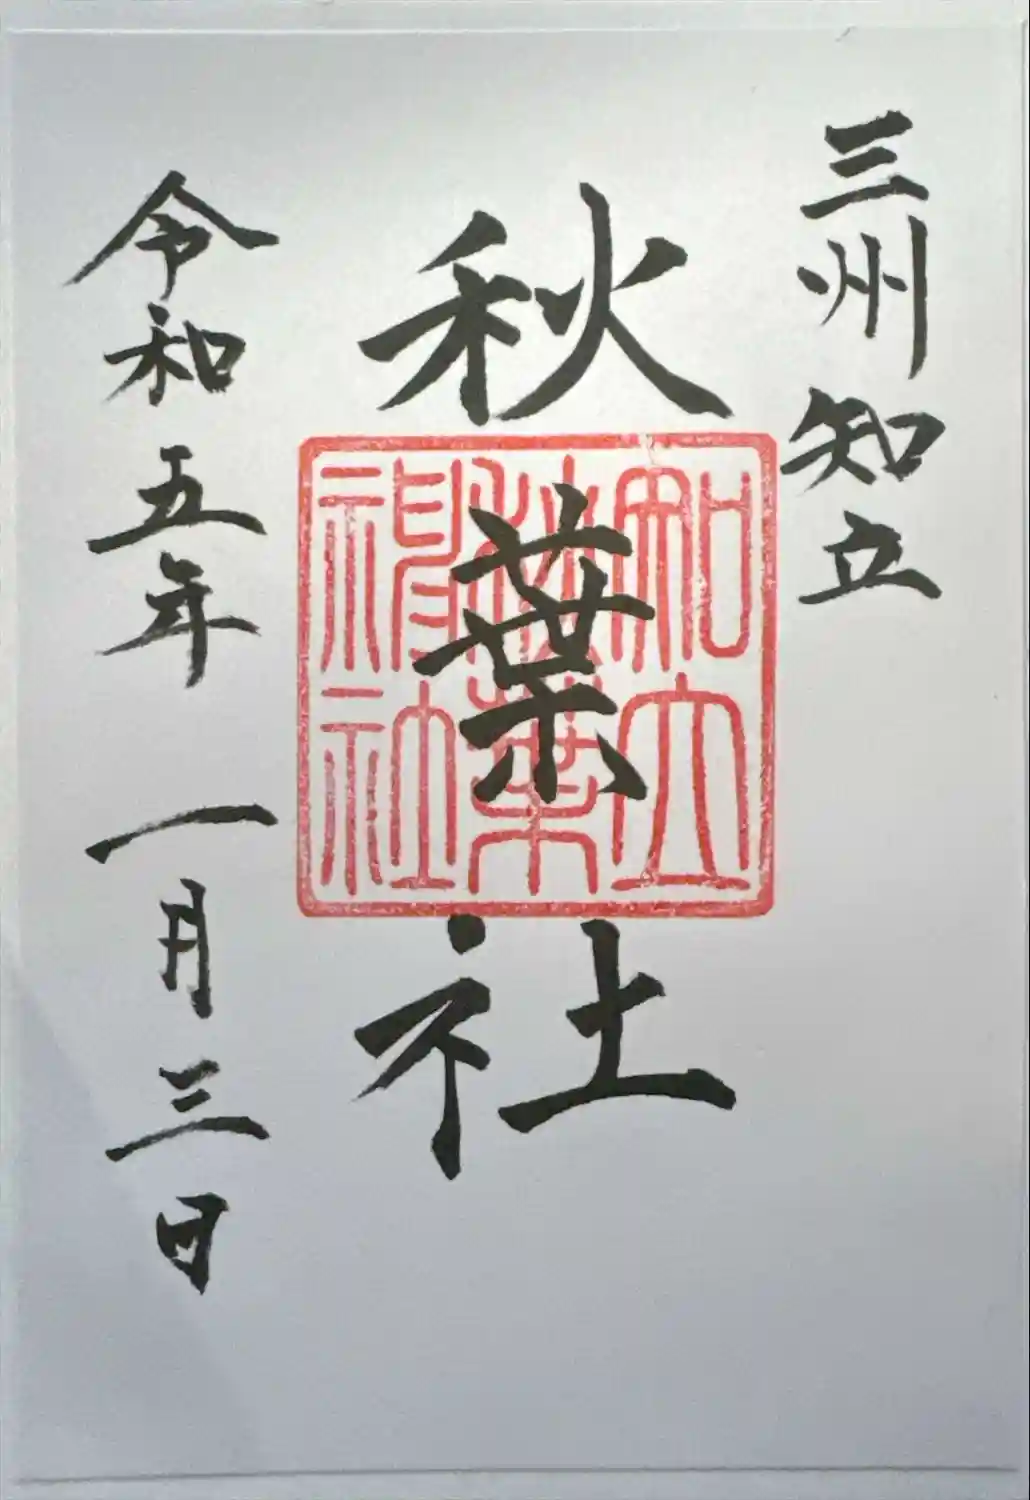 三州知立
秋葉社
知立
秋葉
神社
令和五年一月三日